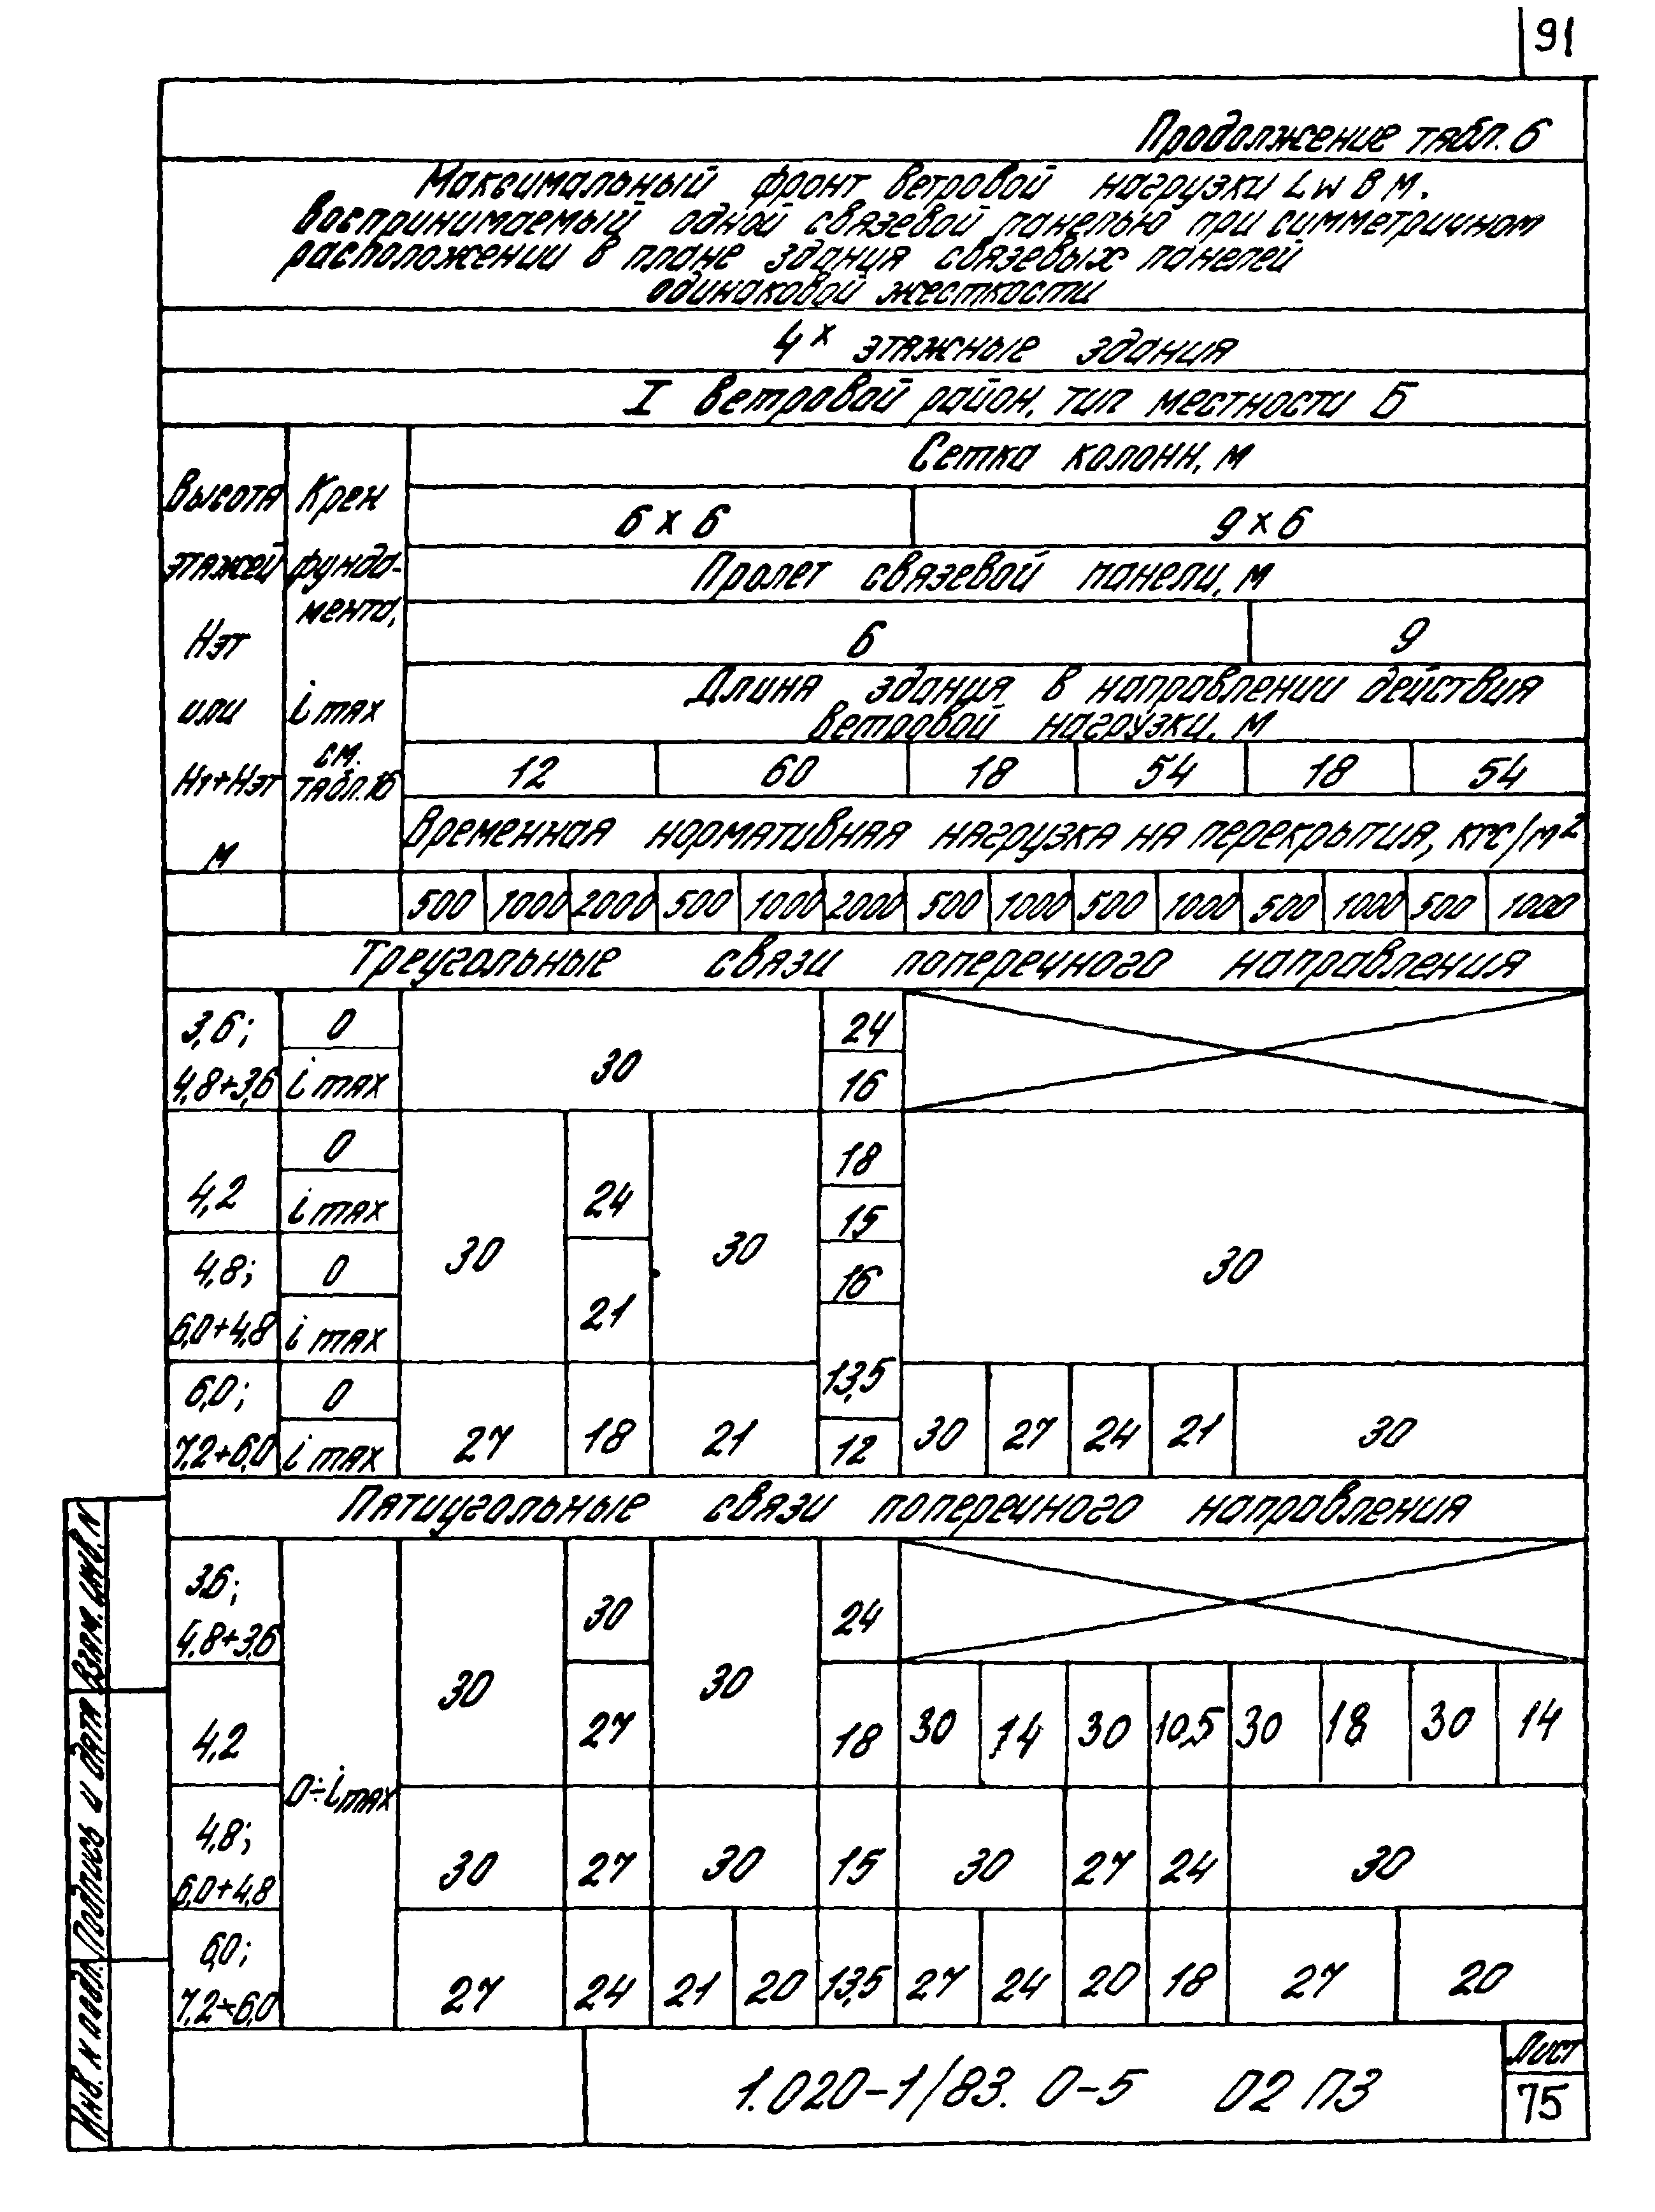 91
Продолжение табл. 6
Максимальный фронт ветровой нагрузки Lw в м.
воспринимаемый одной связевой панелью при симметричном
расположении в плане здания связевых панелей
одинаковой жесткости
4х этажные здания
I ветровой район, тип местности Б
Высота этажей Нэт или Н1+Нэт м
Крен фунда-мента, i max см. табл. 16
Сетка колонн, м
6 х 6 9 х 6
Пролет связевой панели, м
6 9
Длина здания в направлении действия
ветровой нагрузки, м
12 60 18 54 18 54
Временная нормативная нагрузка на перекрытия, кгс/м²
500 1000 2000 500 1000 2000 500 1000 500 1000 500 1000 500 1000
Треугольные связи поперечного направления
3,6; 0 24
30
4,8+3,6 i max 16
0 18
4,2 24
i max 15
30 30 30
4,8; 0 16
21
6,0+4,8 i max
13,5
6,0; 0
27 18 21 30 27 24 21 30
7,2+6,0 i max 12
Пятиугольные связи поперечного направления
3.6;
30 24
4,8+3,6
30 30
4,2 27 18 30 14 30 10,5 30 18 30 14
0÷i max
4,8;
30 27 30 15 30 27 24 30
6,0+4,8
6,0;
27 24 21 20 13,5 27 24 20 18 27 20
7,2+6,0
Взам. инв. N
Подпись и дата
Инв. N подл.
1.020-1/83. 0-5 02 ПЗ
Лист
75